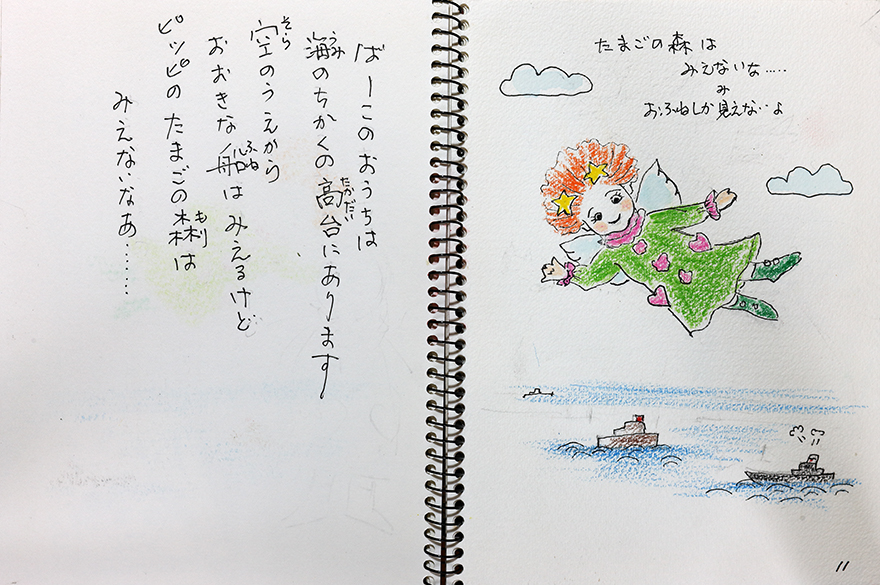 ばーこのおうちは
海のちかくの高台にあります
うみ
たかだい
空のうえから
そら
おおきな船はみえるけど
ふね
ピッピのたまごの森は
もり
みえないなあ‥‥‥
たまごの森は
みえないな‥‥‥
おふねしか見えない‥よ
み
11